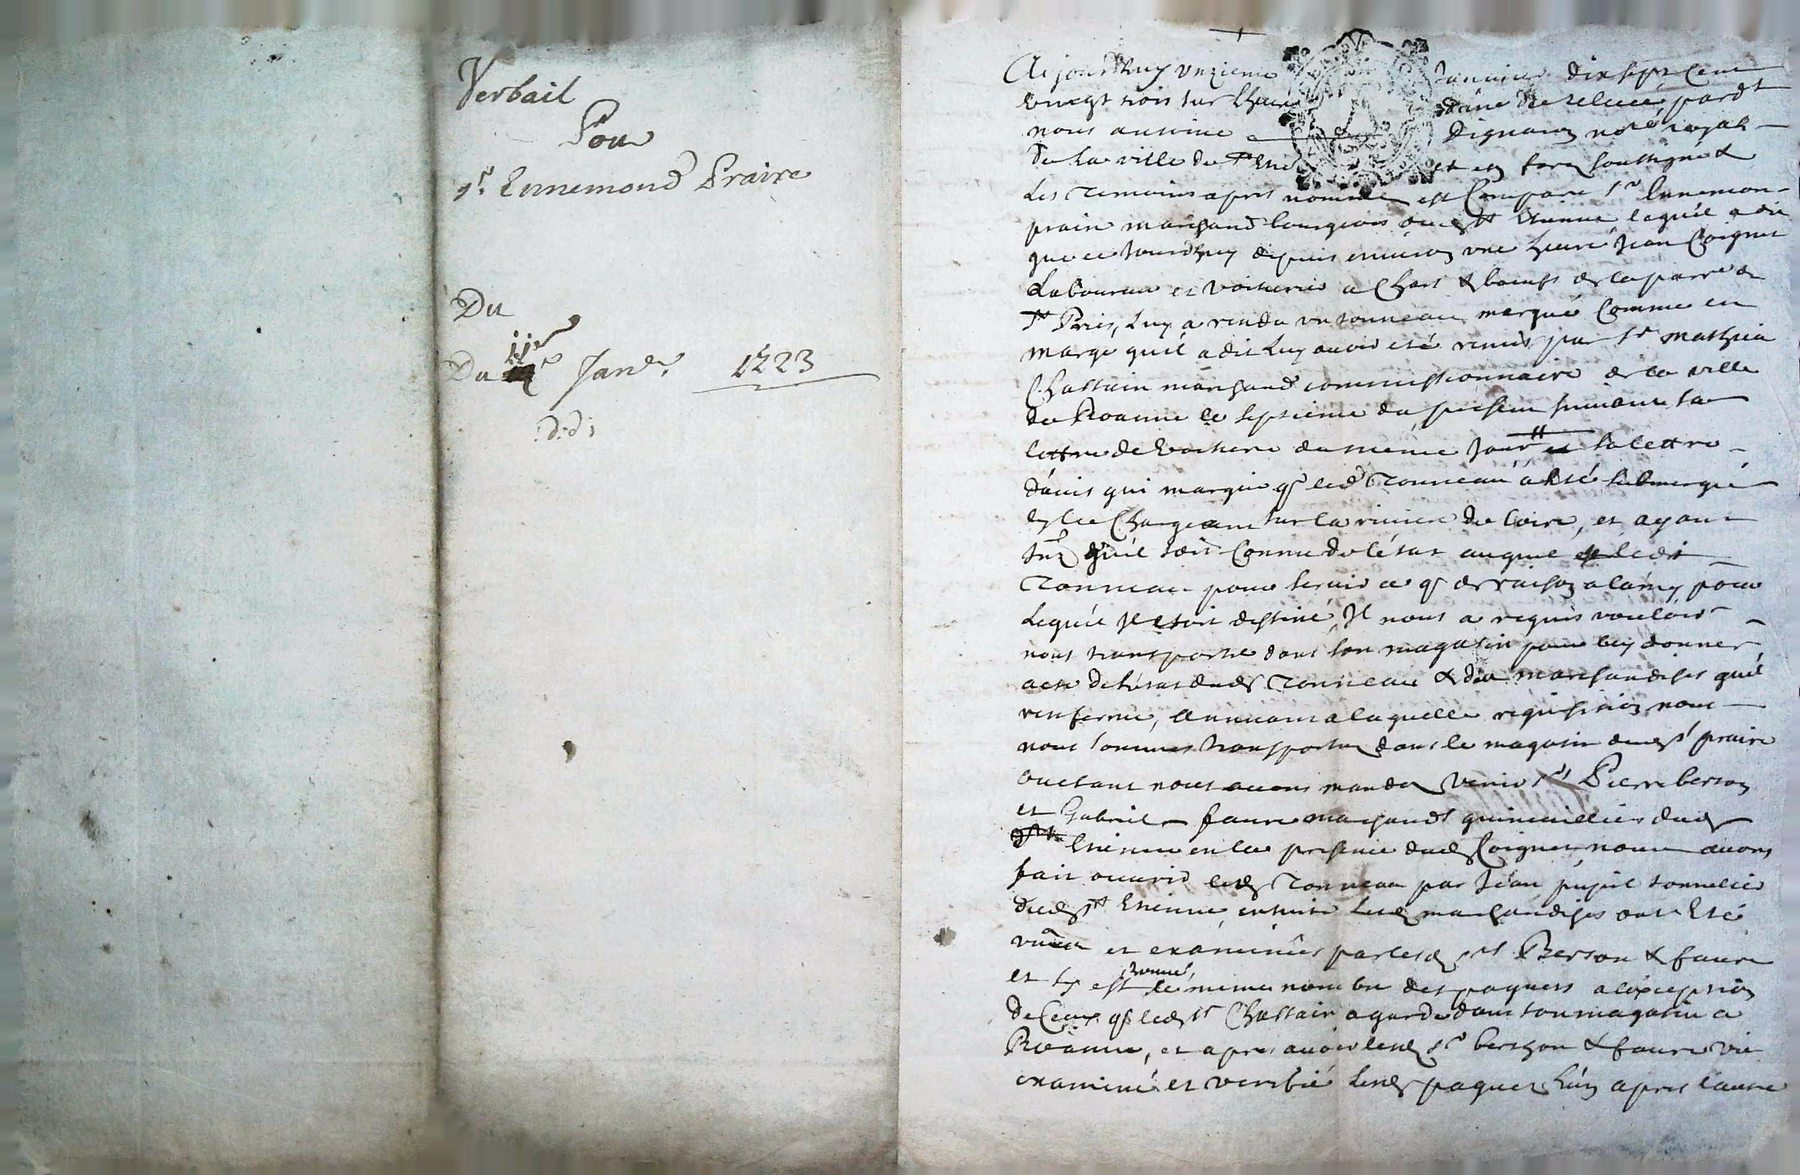 Verbail
Pour
Sr. Ennemond Praire
Du
11e
Du Janer. 1723
d:d:
Aujourdhuy unzieme Janvier dix sept cent
vingt trois sur lheure de relevée, pardt
nous antoine Dignaron notre royal
de la ville de St Etie et en forez soussigné &
les temoins apres nommes est Comparu Sr Ennemon
prair marchand bourgeois dud St Etienne lequel a dit
que ce jourdhuy depuis environ une heure Jean Coignet
Laboureur et voiturier a Chars & boeufs de la parre de
St Priés, luy a rendu un tonneau marqué Comme en
marge quil a dit luy avoir eté remis par Sr mathieu
Chastain marchand commissionnaire de la ville
de Roanne le septieme du present suivant sa
lettre de voiture du meme jour et la lettre
davis qui marque q led Tonneau a esté submergé
en le Chargeant sur la riviere de loire, et ayant
quil soit Connu de létat auquel est ledit
Tonneau pour servir ce q de raison a lamy pour
Lequel il étoit destiné, Il nous a requis vouloir
nous transporter dans son magasin pour luy donner
acte de létat dud Tonneau & des marchandises quil
renferme, a laquelle requisition nous
nous sommes transportes dans le magasin dud Sr praire
ou etant nous avons mandé venir srs Pierre berson
et Gabriel faure marchands quincailliers dud
St Etienne en la presence dud Coignet nous avons
fait ouvrir led Tonneau par Jean pupil tonnelier
dud St Etienne ensuite Lesd marchandises ont Eté
vues et examinées par lesd srs Berson & faure
et sy est trouvé le meme nombre des paquets a lexception
de Ceux q led Sr Chastain a gardé dans son magasin a
Roanne, et apres avoir lesd srs berson & faure vû
examiné et verifié lesd paquets Lun apres lautre